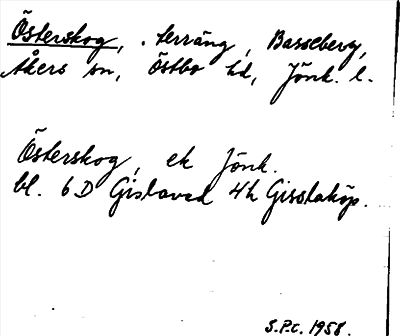 Österskog, . terräng, Basseberg,
Åkers sn, Östbo hd, Jönk. l.
Österskog, ek Jönk.
bl. 6D Gislaved 4h Gisslaköp.
S.P.C. 1958.